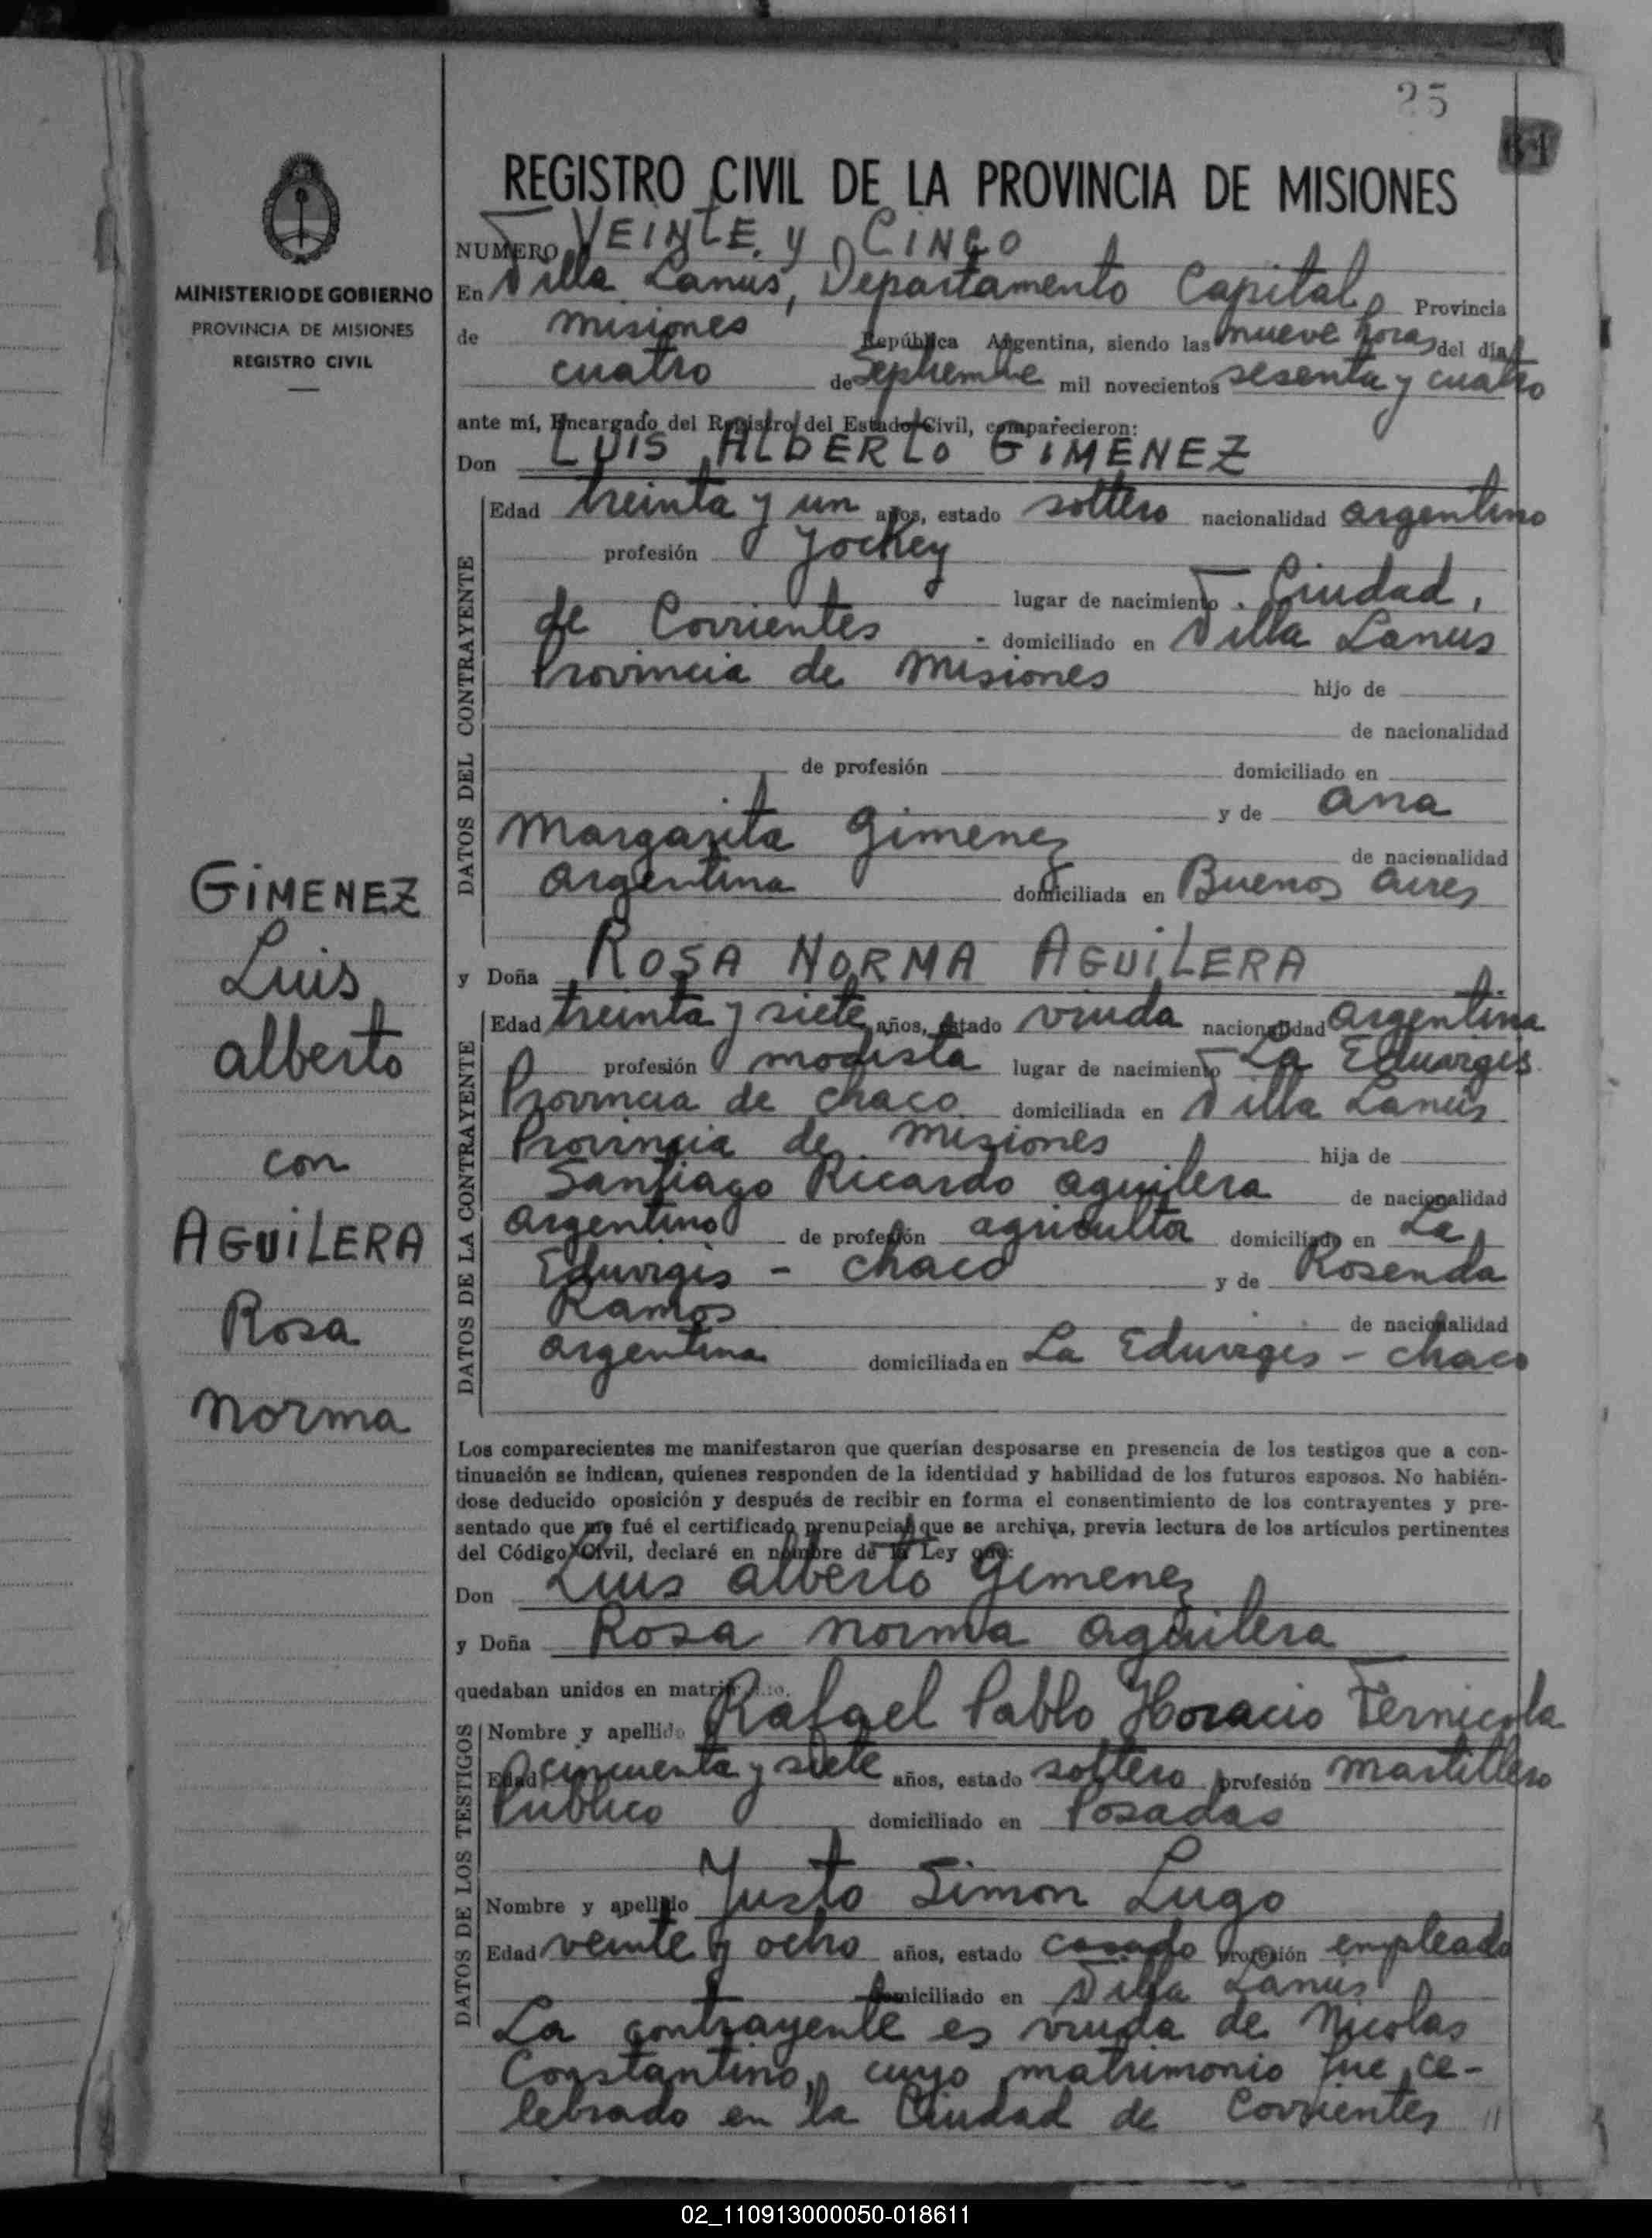 25
64
REGISTRO CIVIL DE LA PROVINCIA DE MISIONES
MINISTERIO DE GOBIERNO
PROVINCIA DE MISIONES
REGISTRO CIVIL
GIMENEZ
Luis
alberto
con
AGUILERA
Rosa
norma
NUMERO VEINTE y CINCO
En Villa Lanus, Departamento Capital, Provincia
de misiones República Argentina, siendo las nueve horas del día
cuatro de Septiembre mil novecientos sesenta y cuatro
ante mí, Encargado del Registro del Estado Civil, comparecieron:
Don LUIS ALBERTO GIMENEZ
DATOS DEL CONTRAYENTE
Edad treinta y un años, estado soltero nacionalidad argentino
profesión Jockey
lugar de nacimiento Ciudad,
de Corrientes - domiciliado en Villa Lanus
Provincia de misiones hijo de
de nacionalidad
de profesión domiciliado en
y de ana
margarita gimenez de nacionalidad
argentina domiciliada en Buenos aires
y Doña ROSA NORMA AGUILERA
DATOS DE LA CONTRAYENTE
Edad treinta y siete años, estado viuda nacionalidad argentina
profesión modista lugar de nacimiento La Eduargis
Provincia de chaco domiciliada en Villa Lanus
Provincia de misiones hija de
Santiago Ricardo aguilera de nacionalidad
argentino de profesión agricultor domiciliado en La
Eduvigis - chaco y de Rosenda
Ramos de nacionalidad
argentina domiciliada en La Eduvigis - chaco
Los comparecientes me manifestaron que querían desposarse en presencia de los testigos que a con-
tinuación se indican, quienes responden de la identidad y habilidad de los futuros esposos. No habién-
dose deducido oposición y después de recibir en forma el consentimiento de los contrayentes y pre-
sentado que me fué el certificado prenupcial que se archiva, previa lectura de los artículos pertinentes
del Código Civil, declaré en nombre de la Ley que:
Don Luis alberto gimenez
y Doña Rosa norma aguilera
quedaban unidos en matrimonio.
DATOS DE LOS TESTIGOS
Nombre y apellido Rafael Pablo Horacio Fernicola
Edad cincuenta y siete años, estado soltero profesión martillero
Publico domiciliado en Posadas
Nombre y apellido Justo Simon Lugo
Edad veinte y ocho años, estado casado profesión empleado
domiciliado en Villa Lanus
La contrayente es viuda de Nicolas
Constantino, cuyo matrimonio fue ce-
lebrado en la Ciudad de Corrientes //
02_110913000050-018611